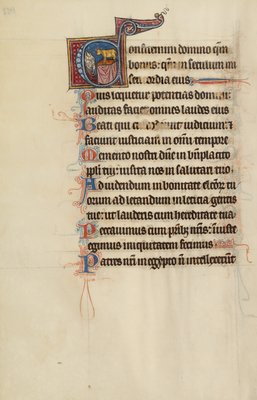 Confitemini domino qm̄
bonus: qm̄ in seculum mi
sericordia eius.
Quis loquetur potentias domini:
auditas faciet omnes laudes eius
Beati qui custodiunt iudicium: ⁊
faciunt iusticiam in omni tempore
Memento nostri dn̄e in bn̄placito
ppl̄i tui: uisita nos in salutari tuo.
Ad uidendum in bonitate elc̄or̄ tu
orum ad letandum in leticia gentis
tue: ut lauderis cum hereditate tua
Peccauimus cum prib; nr̄is: iniuste
egimus iniquitatem fecimus
Patres nr̄i in egypto nō intellexer̄t